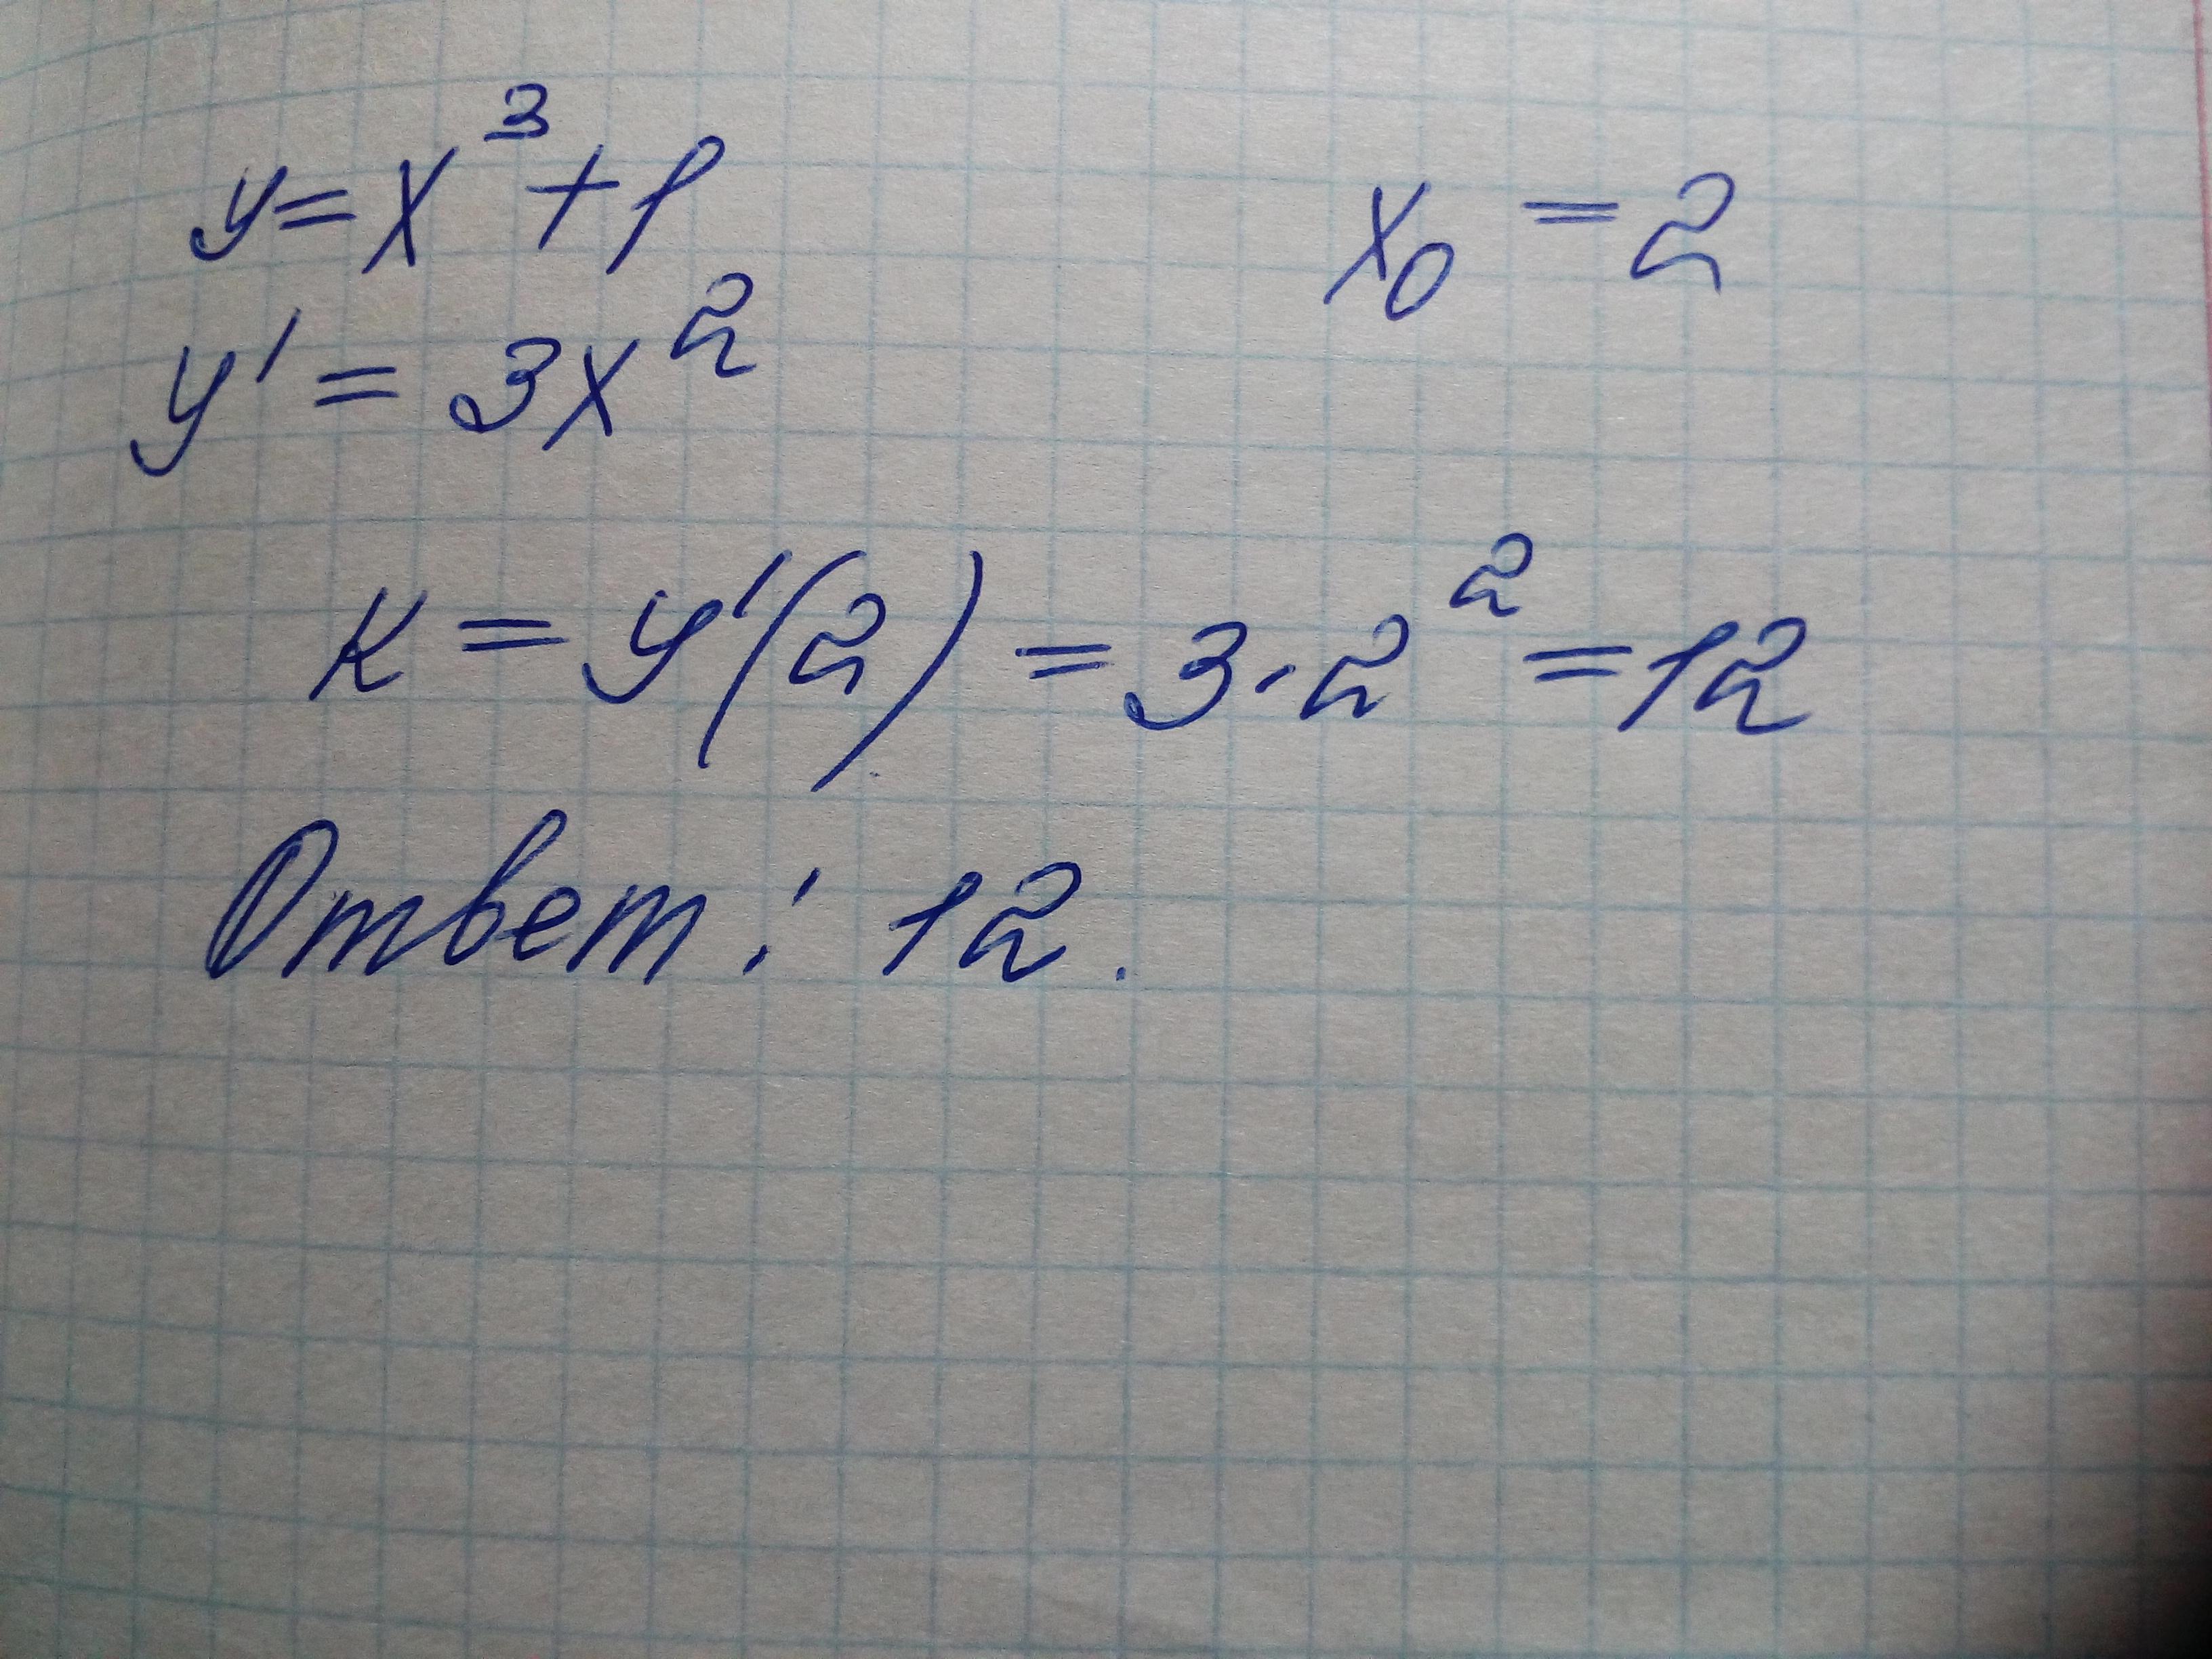 y=x³+1 x₀=2
y'=3x²
к=y'(2)=3·2²=12
Ответ: 12.